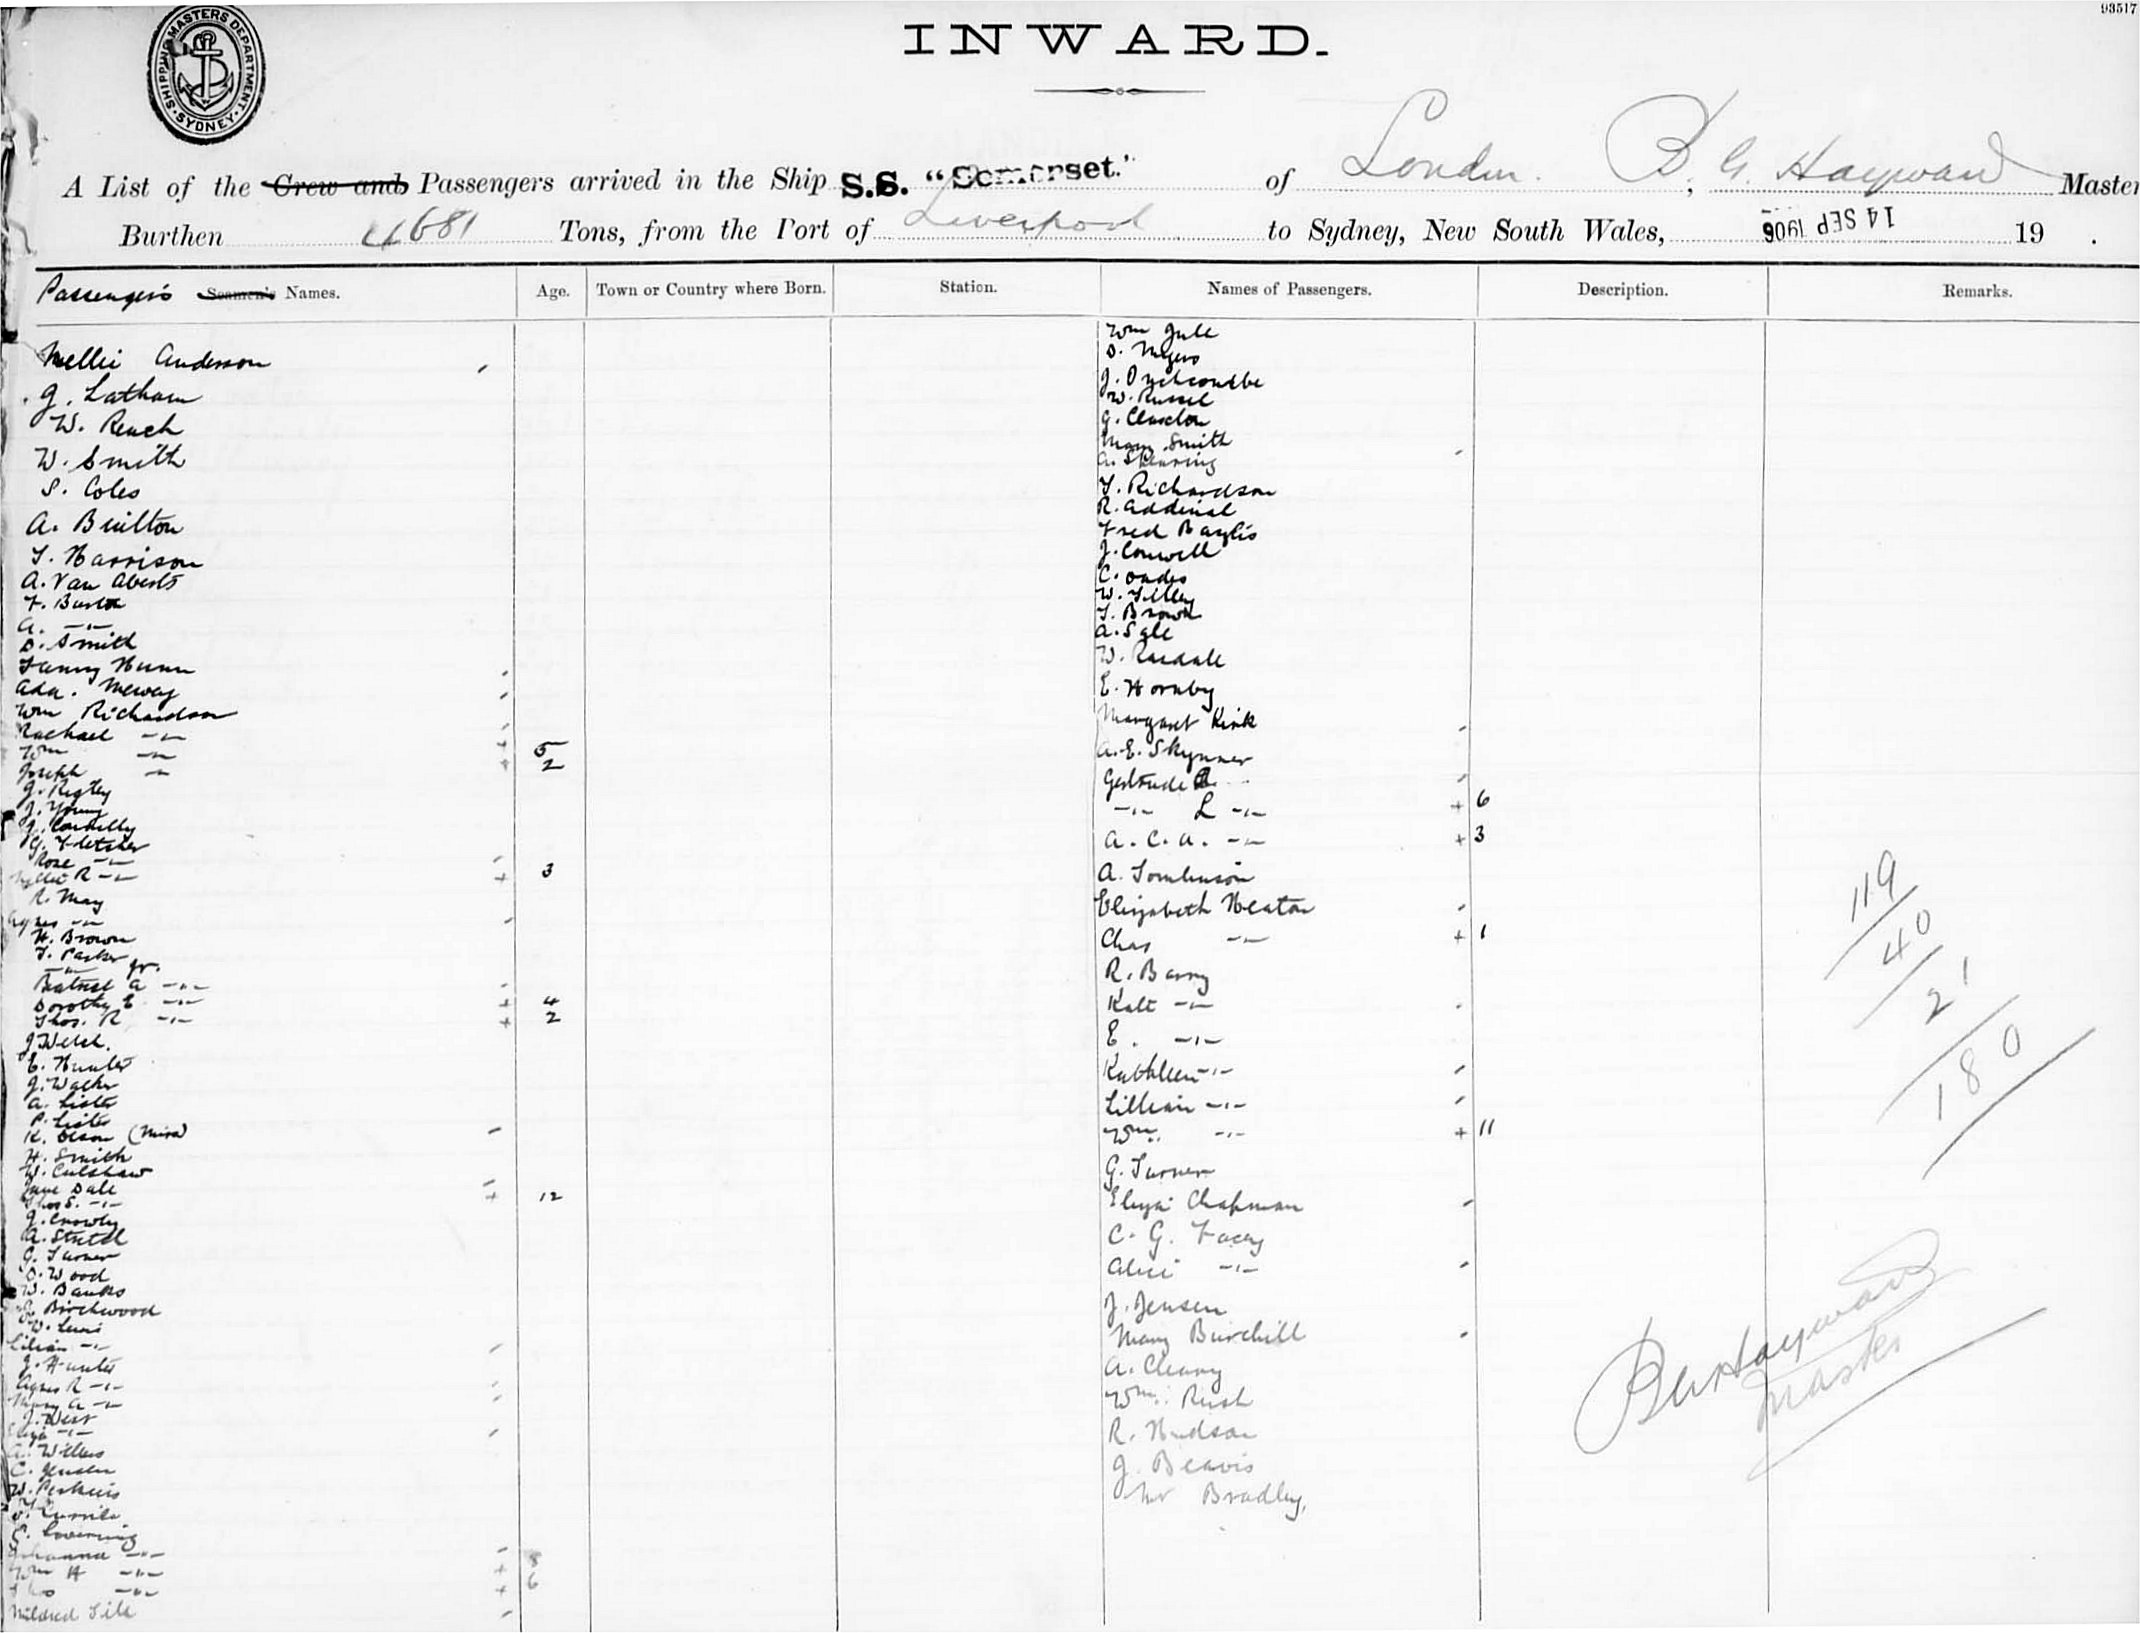 93517
SHIPPING MASTERS DEPARTMENT. SYDNEY
INWARD.
A List of the Crew and Passengers arrived in the Ship S.S. "Somerset." of London. B. G. Hayward, Master
Burthen 4681 Tons, from the Port of Liverpool to Sydney, New South Wales, 14 SEP 1906 19 .
Passengers Seamen's Names. Age. Town or Country where Born. Station. Names of Passengers. Description. Remarks.
Nellie Anderson
G. Latham
W. Reach
W. Smith
S. Coles
A. Builton
T. Harrison
A. Van
F. Burton
A. -"-
D. Smith
Fanny Nunn
Ada.
Wm Richardson
Rachael -"-
Wm -"- 5
Joseph -"- 2
J. Rigley
J. Young
J. Connelly
G. Fletcher
Rose -"-
R -"- 3
R. May
Agnes -"-
H. Brown
T. Parker
-"- jr.
Beatrice A -"-
Dorothy E -"- 4
Thos. R -"- 2
J Welsh.
E. Hunter
J. Walker
A. Lister
P. Lister
K. Olson (Miss)
H. Smith
W. Culshaw
Jane Dale
Thos S. -"- 12
J. Crowley
A.
G. Turner
D. Wood
W. Banks
Birchwood
W. Lewis
Lilian -"-
J. Hunter
Agnes R -"-
Mary A -"-
J. West
Eliza -"-
A.
C. Jensen
W. Perkins
E. Lovering
Johanna -"-
Wm H -"- 8
Thos -"- 6
Mildred
Wm Jule
D. Myers
J.
W. Russel
G. Claxton
Mary Smith
A. Spearing
T. Richardson
R. Addinal
Fred Baylis
J. Conwell
C. Oades
W. Tilley
T. Brown
A. Sale
W. Rasdall
E. Hornby
Margaret Kirk
A. E. Skynner
Gertrude -"-
-"- L -"- 6
A. C. A. -"- 3
A. Tomlinson
Elizabeth Heaton
Chas -"- 1
R. Barry
Kate -"-
E. -"-
Kathleen -"-
Lillian -"-
Wm. -"- 11
G. Turner
Eliza Chapman
C. G. Facey
Alice -"-
J. Jensen
Mary Burchill
A. Cleary
Wm. Rush
R. Hudson
J. Beavis
Mr Bradley.
119
40
21
180
B G Hayward
Master